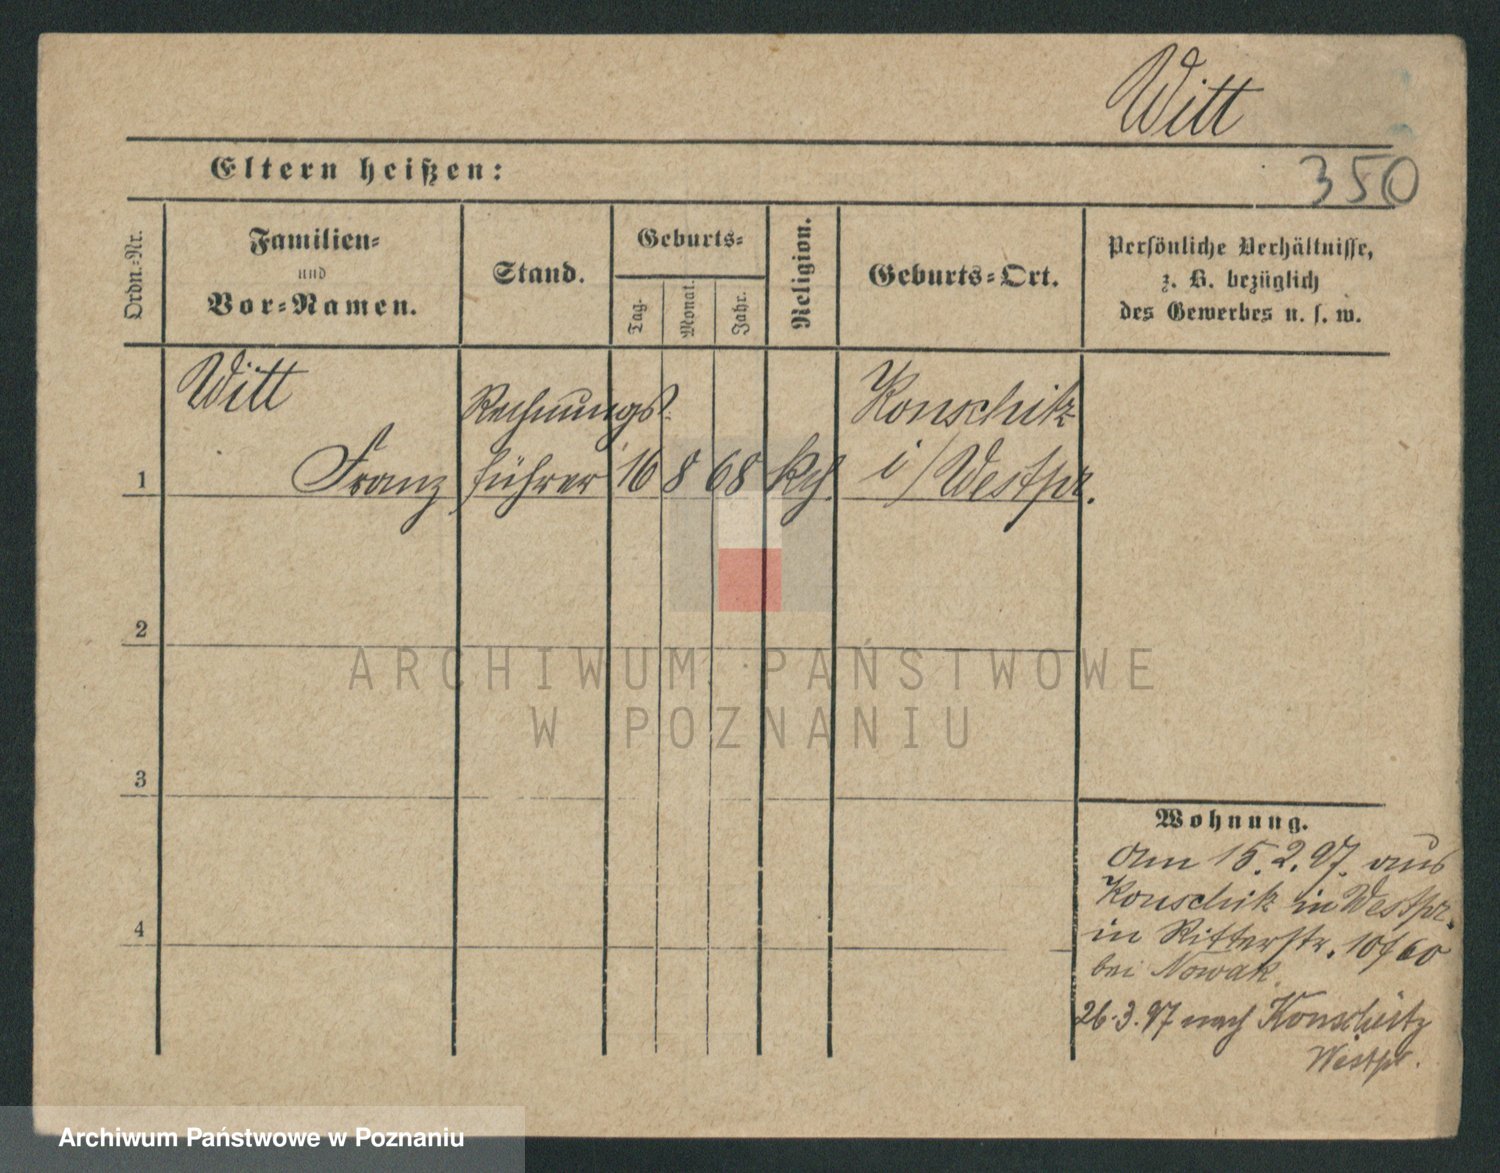 Witt
350
Eltern heißen:
Ordn.-Nr.
Familien-
und
Vor-Namen.
Stand.
Geburts-
Tag.
Monat.
Jahr.
Religion.
Geburts-Ort.
Persönliche Verhältnisse,
z. B. bezüglich
des Gewerbes u. s. w.
1
Witt
Franz
Rechnungs-
führer
16
8
68
kth.
Konschitz
i/Westpr.
2
3
4
Wohnung.
Am 15.2.97. aus
Konschitz in Westpr.
in Ritterstr. 10/60
bei Nowak
26.3.97 nach Konschitz
Westpr.
ARCHIWUM PAŃSTWOWE
W POZNANIU
Archiwum Państwowe w Poznaniu